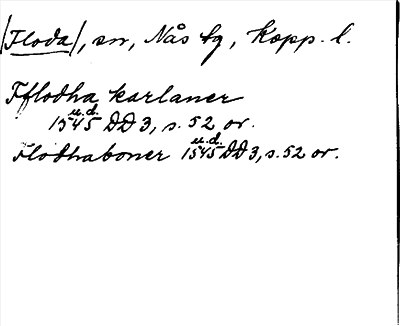 /Floda/, sn, Nås tg, Kopp. l.
Fflodha karlaner
1545 u.d. DD 3, s. 52 or.
Flodhaboner 1545 u.d. DD 3, s. 52 or.